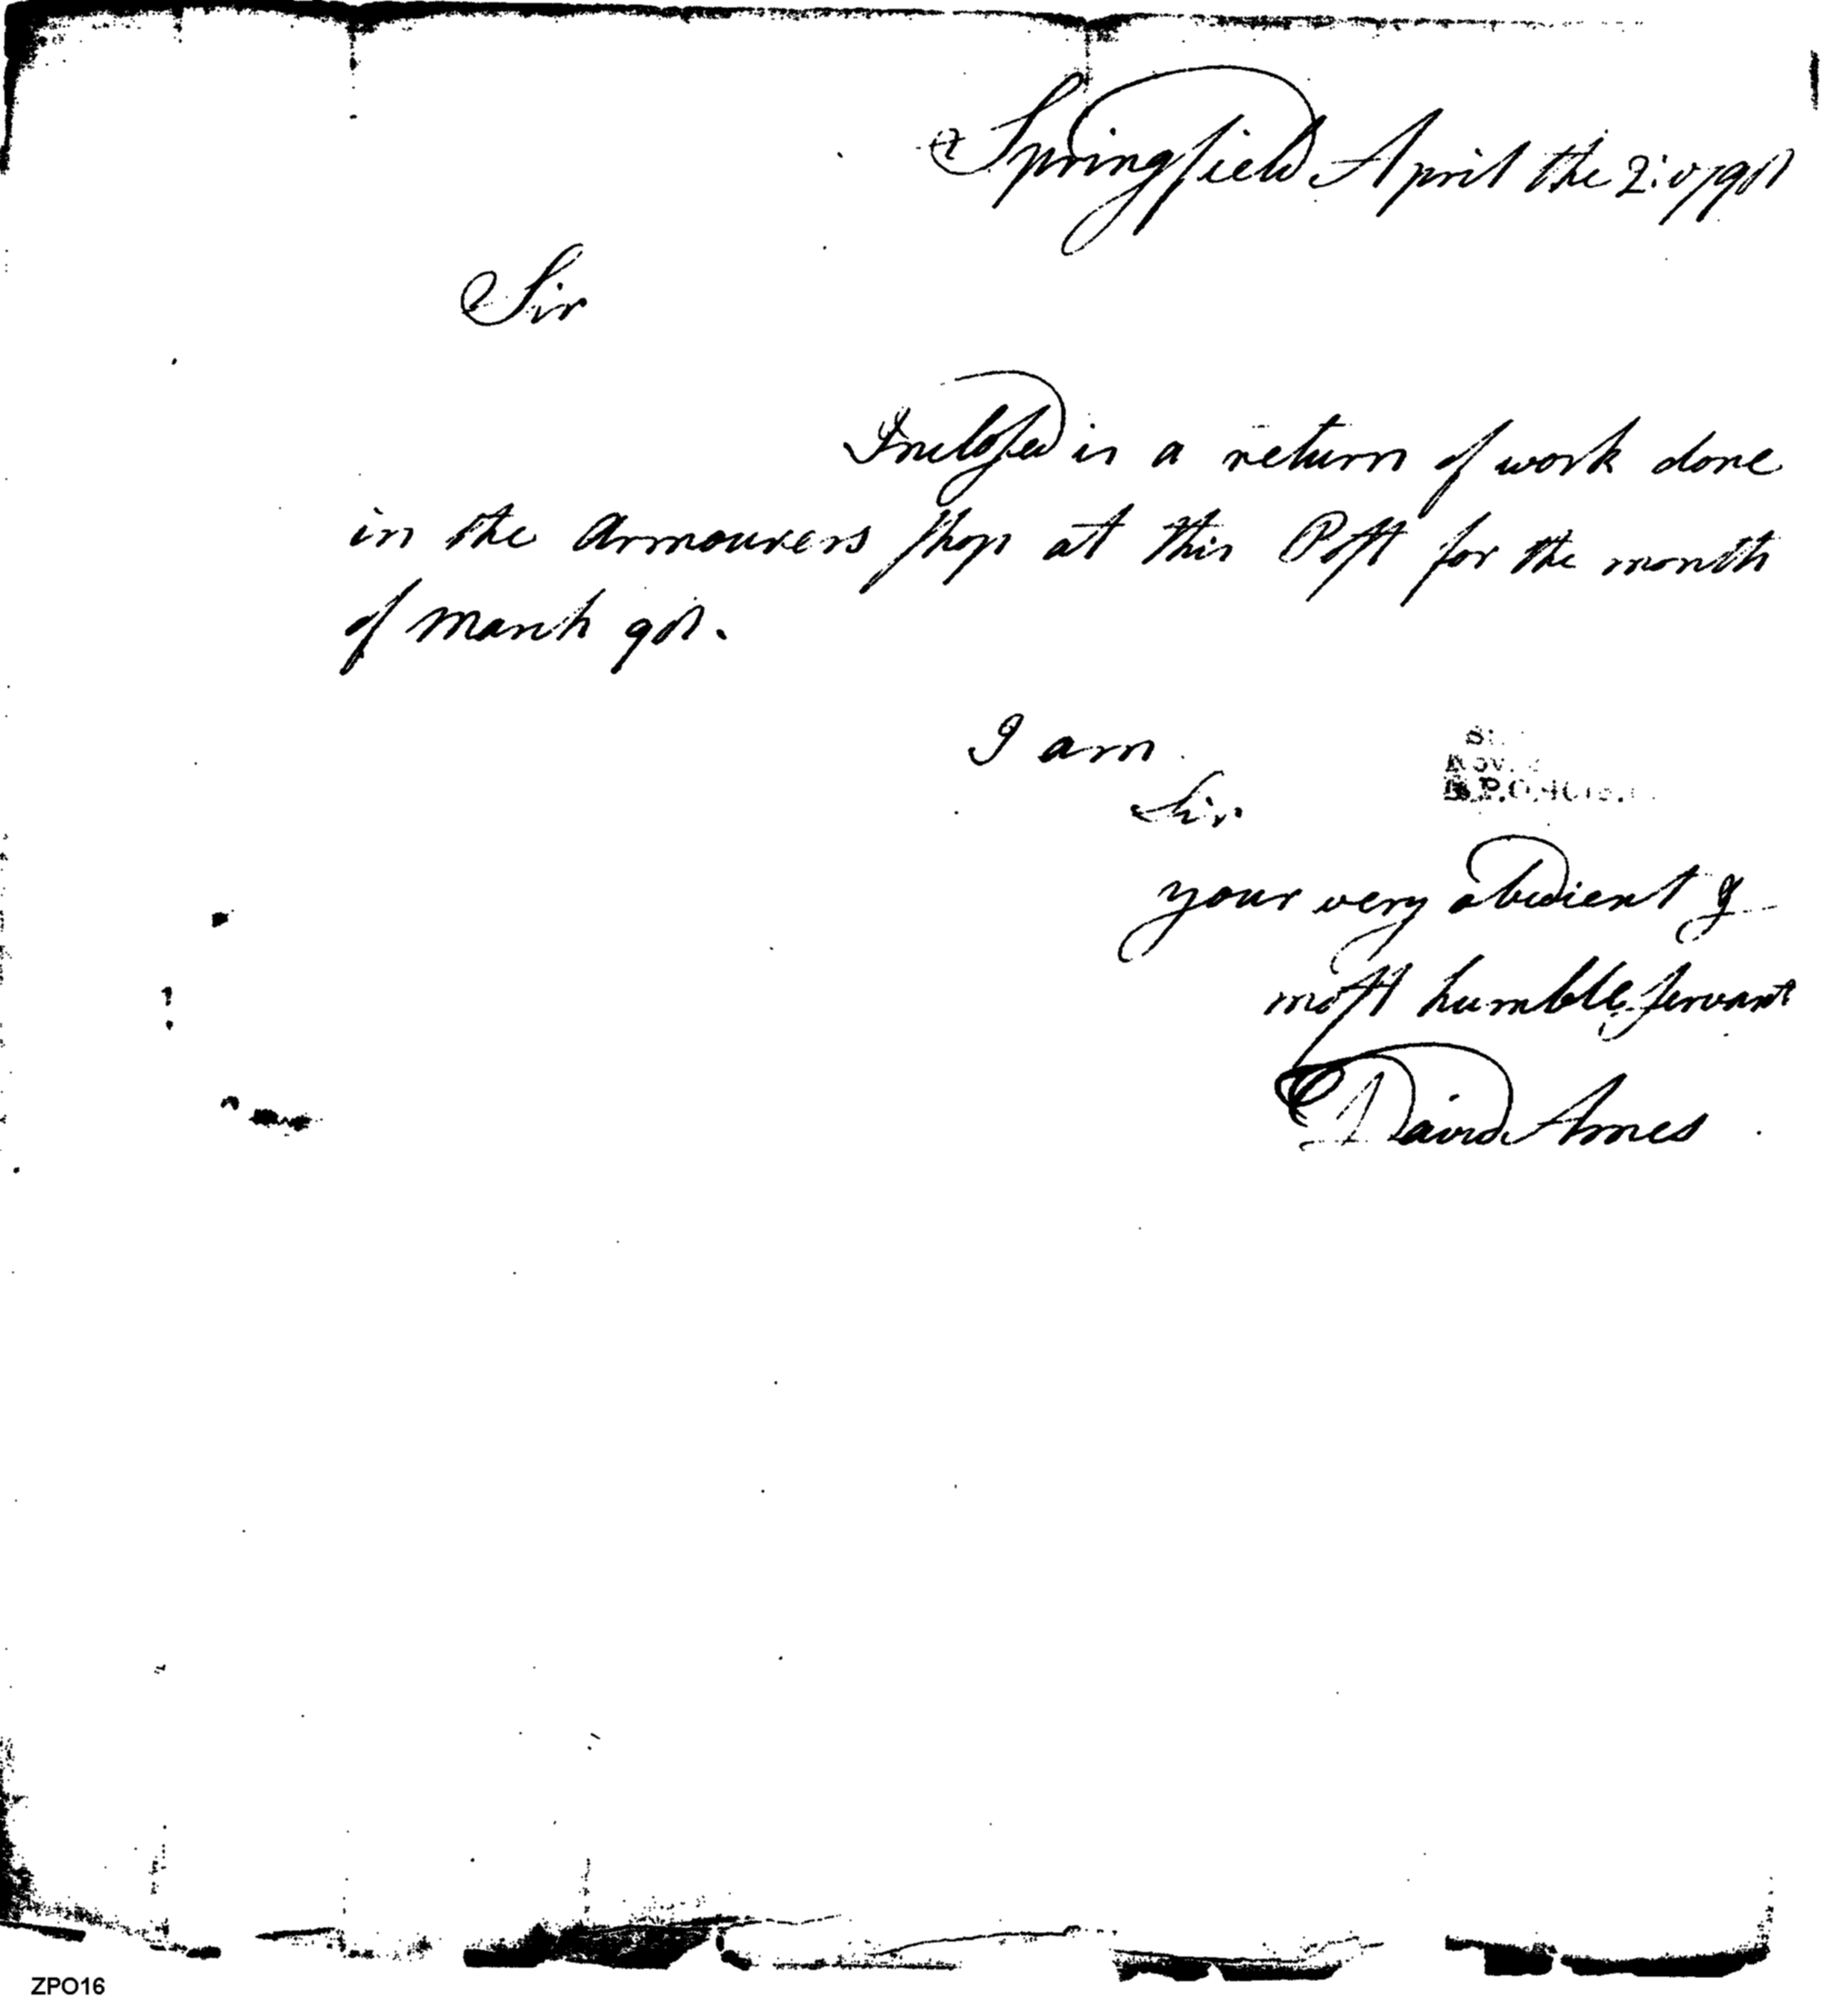 Springfield April the 2: 1798
Sir
Inclosed is a return of work done
in the Armourers shop at this Post for the month
of march 98.
I am
Sir
your very obedient &
most humble servant
David Ames
ZPO16